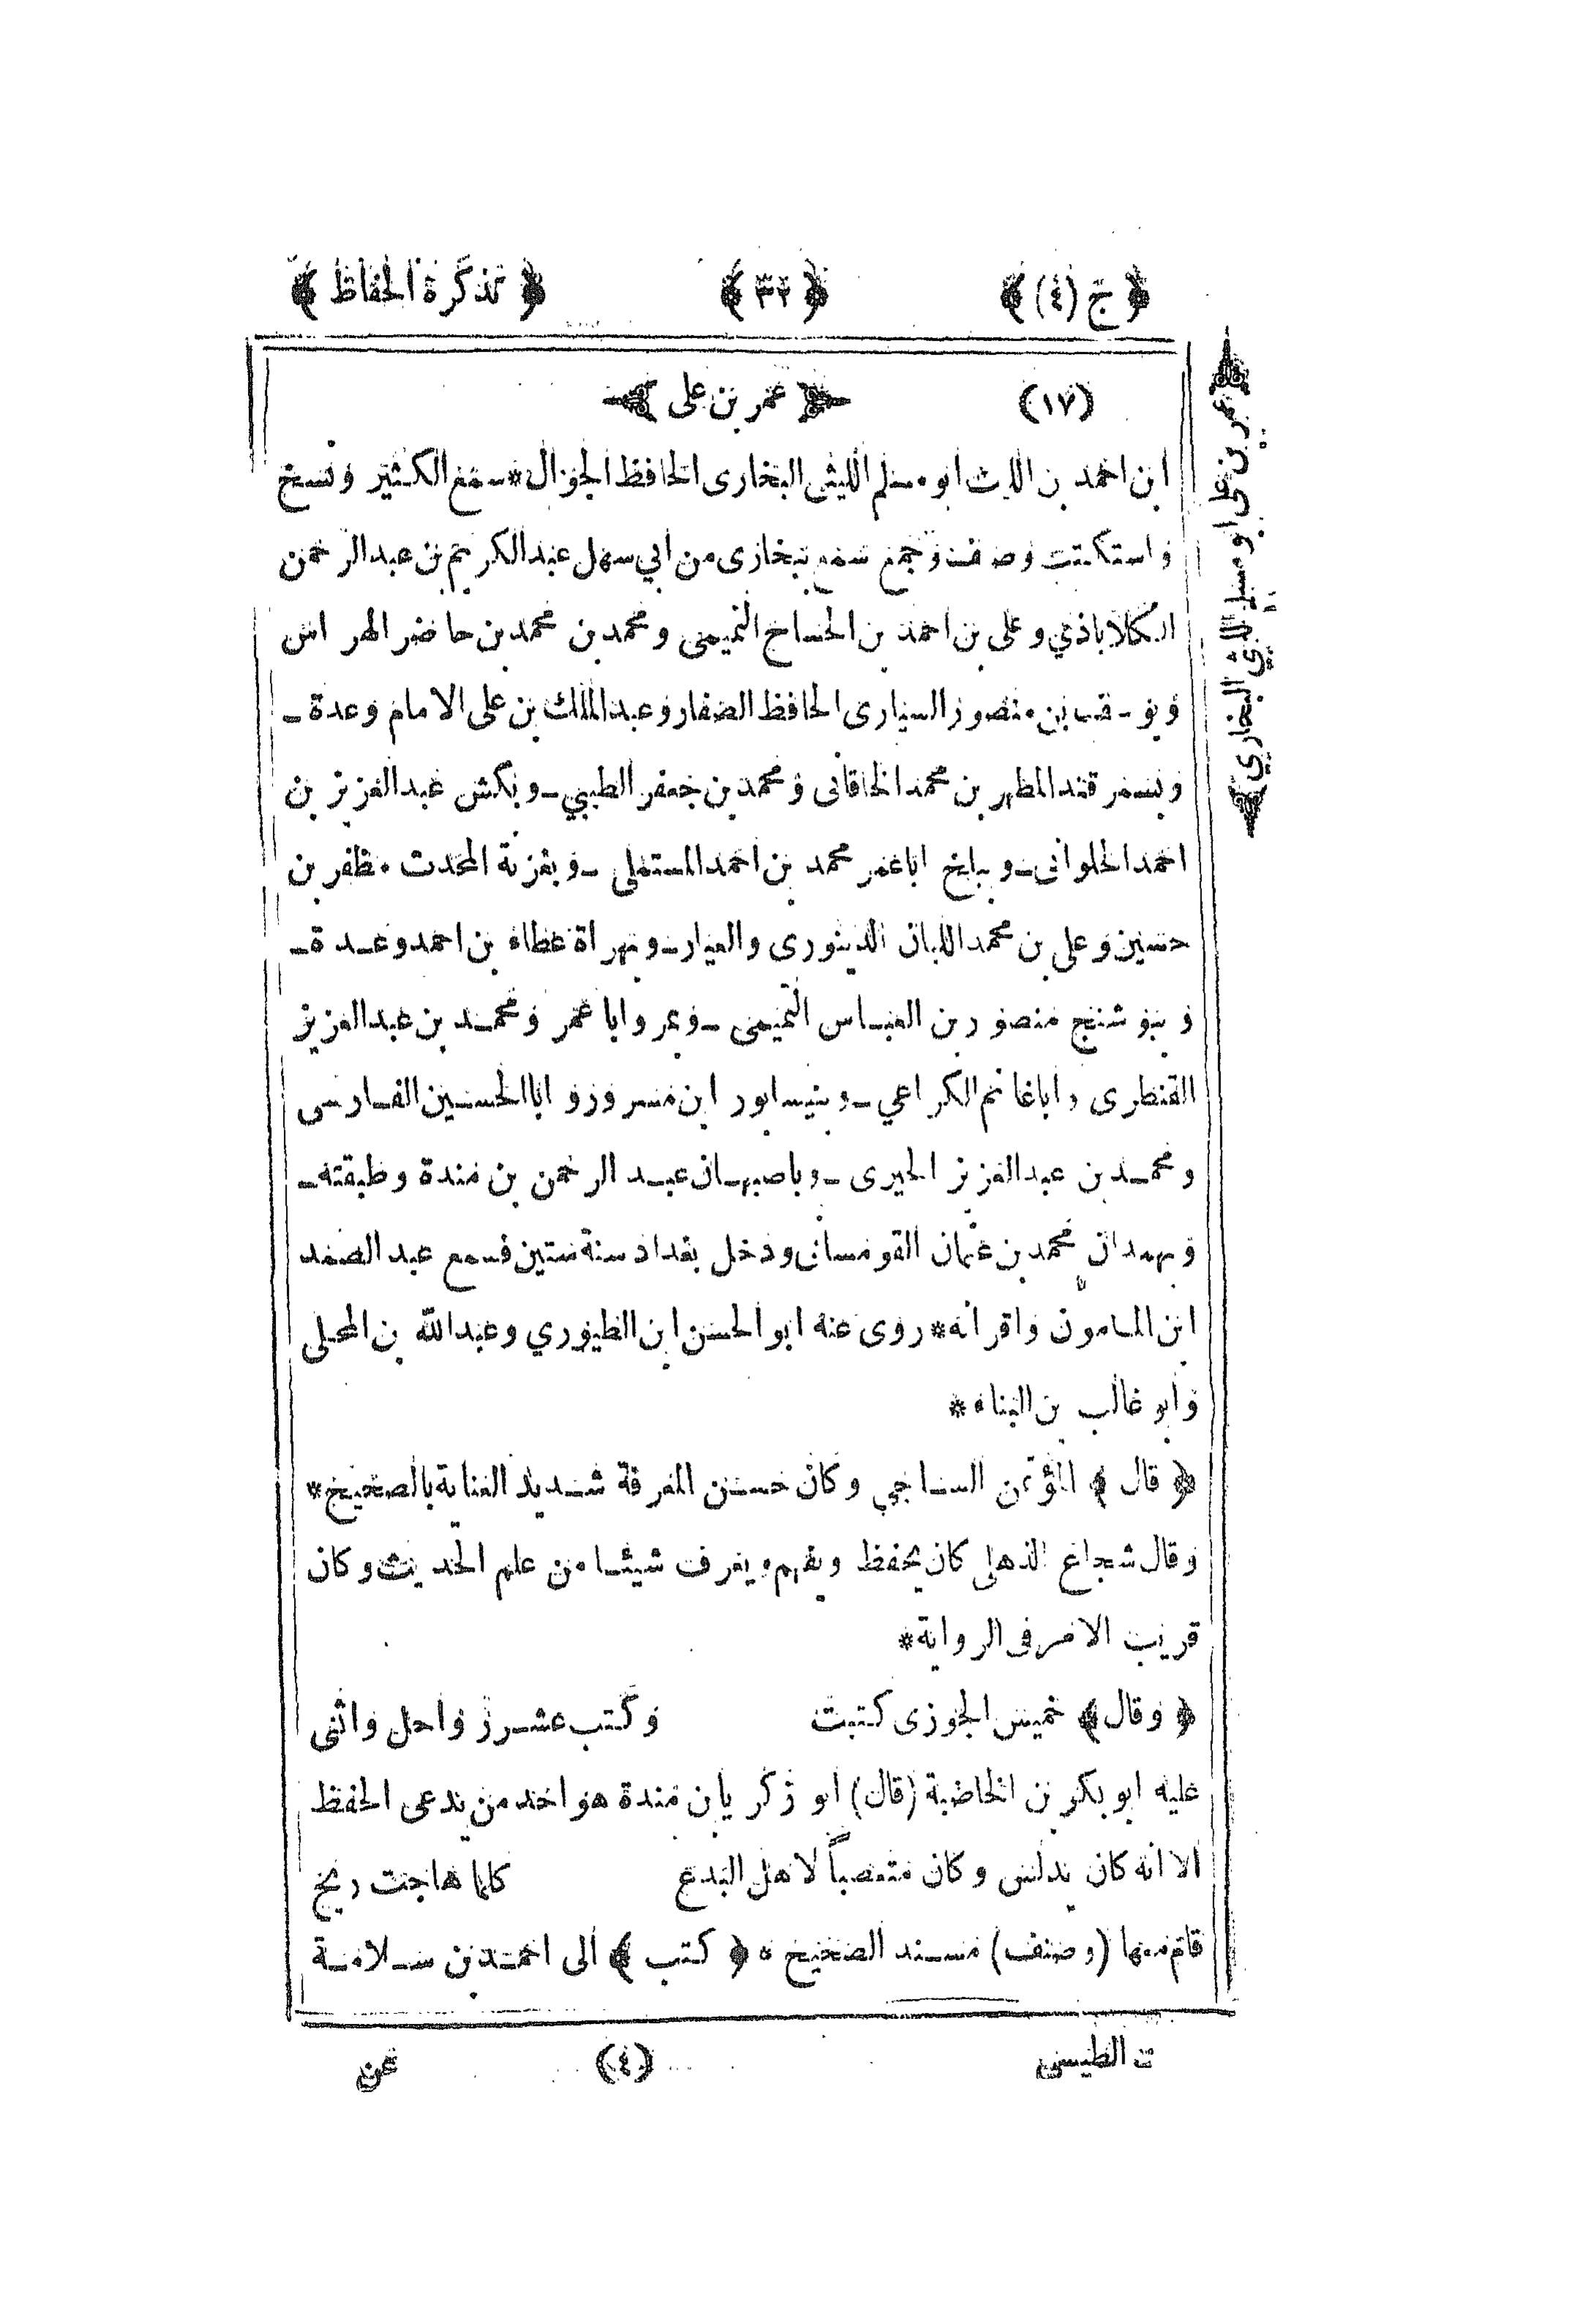 ﴿ ج (٤) ﴾ ﴿ ٣٢ ﴾ ﴿ تذكرة الحفاظ ﴾
(١٧) عمر بن على
عمر بن على ابو مسلم الليثي البخاري
ابن احمد بن الليث ابو مسلم الليثى البخارى الحافظ الجوال * سمع الكثير ونسخ
واستكتب وصنف وجمع سمع ببخارى من ابي سهل عبد الكريم بن عبد الرحمن
الكلاباذي وعلى بن احمد بن التميمى ومحمد بن محمد بن حاضر الهراس
ويوسف بن منصور السيارى الحافظ الصفار وعبد الملك بن على الامام وعدة ـ
وبسمرقند المطهر بن محمد الخاقانى ومحمد بن جعفر الطبيي ـ وبكش عبد العزيز بن
احمد الحلوانى ـ وببلخ اباعمر محمد بن احمد المستملى ـ وبغزنة المحدث مظفر بن
حسين وعلي بن محمد اللبان الدينورى والعيار ـ وبهراة عطاء بن احمد وعدة ـ
وببوشنج منصور بن العباس التميمى ـ وبمرو ابا عمر ومحمد بن عبد العزيز
القنطرى واباغانم الكراعي ـ وبنيسابور ابن مسرور و ابا الحسين الفارسى
ومحمد بن عبد العزيز الحيرى ـ وباصبهان عبد الرحمن بن مندة وطبقته ـ
وبهمدان محمد بن عثمان القومسانى ودخل بغداد سنة ستين فسمع عبد الصمد
ابن المامون واقرانه * روى عنه ابو الحسن ابن الطيوري وعبد الله بن المحلى
وابو غالب بن البناء *
﴿ قال ﴾ المؤتمن الساجي وكان حسن المعرفة شديد العناية بالصحيح *
وقال شجاع الذهلى كان يحفظ ويفهم ويعرف شيئا من علم الحديث وكان
قريب الامر فى الرواية *
﴿ وقال ﴾ خميس الحوزى كتبت وكتب عشرز واحل واثنى
عليه ابو بكر بن الخاضبة (قال) ابو زكريا بن مندة هو احد من يدعى الحفظ
الا انه كان يدلس وكان متعصباً لاهل البدع كلما هاجت ريح
قام معها (وصنف) مسند الصحيح * ﴿ كتب ﴾ الى احمد بن سلامة
(٤) عن